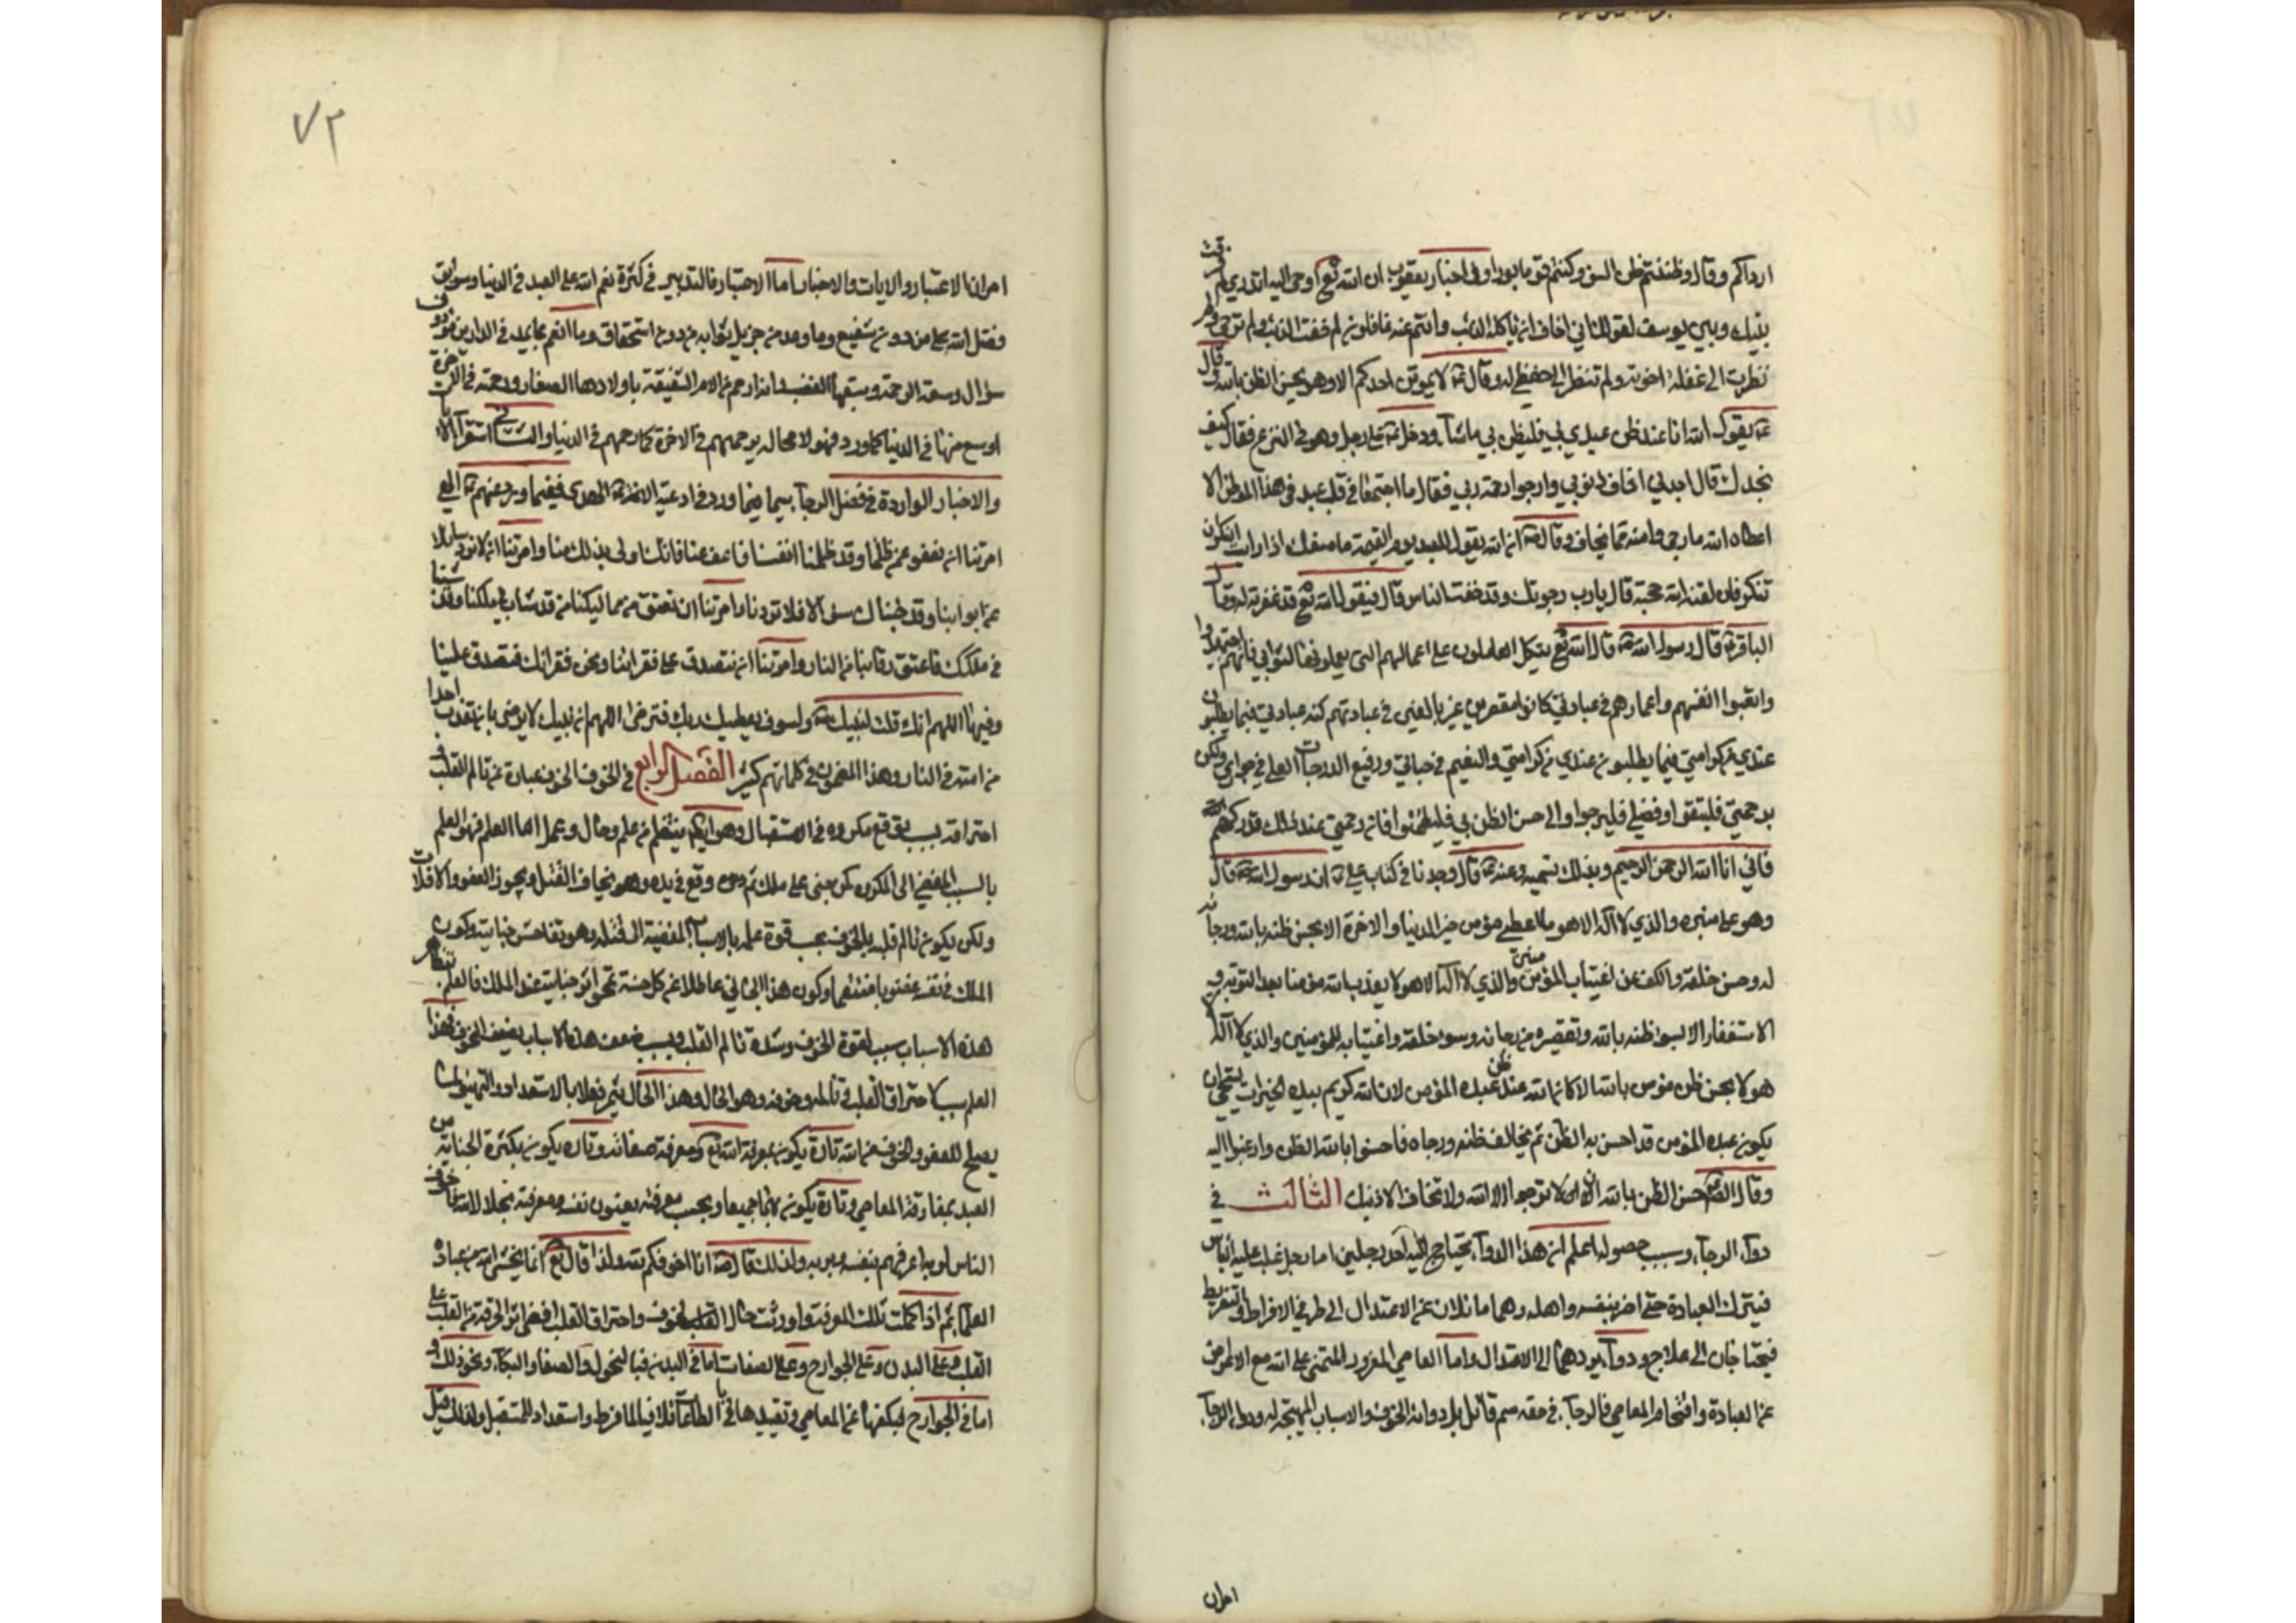 ارداكم وقال وظننتم ظن السوء وكنتم قوما بورا وفي اخبار يعقوب ان الله تع اوحى اليه اتدري لم فرقت
بينك وبين يوسف لقولك اني اخاف ان ياكله الذئب وانتم عنه غافلون لم خفت الذئب ولم ترجني ولم
نظرت الى غفلة اخوته ولم تنظر الى حفظي له وقال ع لا يموتن احدكم الا وهو يحسن الظن بالله وقال
ع يقول الله انا عند ظن عبدي بي فليظن بي ماشاء ودخل ع على رجل وهو في النزع فقال كيف
تجدك قال اجدني اخاف ذنوبي وارجوا رحمة ربي فقال ما اجتمعا في قلب عبد في هذا الموطن الا
اعطاه الله ما رجى وامنه مما يخاف وقال ص ان الله يقول للعبد يوم القيمة ما منعك اذا رايت المنكر ان
تنكر فان لقنه الله حجته قال يارب رجوتك وقد خفت الناس قال فيقول الله تع قد غفرته له وقال
الباقر ع قال رسول الله ص قال الله تع لا يتكل العاملون على اعمالهم التي يعملونها لثوابي فانهم لو اجتهدوا
واتعبوا انفسهم واعمارهم في عبادتي كانوا مقصرين غير بالغين في عبادتهم كنه عبادتي فيما يطلبون
عندي من كرامتي فيما يطلبون عندي من كرامتي والنعيم في جناتي ورفيع الدرجات العلى في جواري ولكن
برحمتي فليثقوا وفضلي فليرجوا والى حسن الظن بي فليطمئنوا فان رحمتي عند ذلك تدركهم
فاني انا الله الرحمن الرحيم وبذلك تسميت وعنه ع قال وجدنا في كتاب علي ع ان رسول الله ص قال
وهو على منبره والذي لا اله الا هو ما اعطي مؤمن خير الدنيا والاخرة الا بحسن ظنه بالله ورجائه
له وحسن خلقه والكف عن اغتياب المؤمنين والذي لا اله الا هو لا يعذب الله مؤمنا بعد التوبة و
الاستغفار الا بسوء ظنه بالله وتقصيره من رجائه وسوء خلقه واغتيابه للمؤمنين والذي لا اله الا
هو لا يحسن ظن مؤمن بالله الا كان الله عند ظن عبده المؤمن لان الله كريم بيده الخيرات يستحيي ان
يكون عبده المؤمن قد احسن به الظن ثم يخالف ظنه ورجاه فاحسنوا بالله الظن وارغبوا اليه
وقال الص حسن الظن بالله ان لا ترجوا الا الله ولا تخاف الا ذنبك الثالث في
دواء الرجاء وسبب حصوله اعلم ان هذا الدواء يحتاج اليه احد رجلين اما رجل غلب عليه الياس
فيترك العبادة حتى اضر بنفسه واهله وهما مائلان عن الاعتدال الى طرفي الافراط والتفريط
فيحتاجان الى علاج ودواء يردهما الى الاعتدال واما العاصي المغرور المتمني على الله مع الاعراض
عن العبادة واقتحام المعاصي فالرجاء في حقه سم قاتل بل دوائه الخوف والاسباب المهيجة له ودواء الرجاء
امران
٧٢
امران الاعتبار والايات والاخبار اما الاعتبار فالتدبر في كثرة نعم الله على العبد في الدنيا وسوابق
فضل الله على من دون شفيع وما وعد من جزيل ثوابه من دون استحقاق وما انعم بما يمد في الدارين من دون
سؤال وسعة الرحمة وسبقها الغضب وانه ارحم من الام الشفيقة باولادها الصغار ورحمته في الاخرة
اوسع منها في الدنيا كما ورد فهو لا محاله يرحمهم في الاخرة كما رحمهم في الدنيا والثاني استقراء الايات
والاخبار الواردة في فضل الرجاء سيما فيما ورد في ادعية الائمة الهدى ففيما ورد عنهم ع الهي
امرتنا ان نعفو عمن ظلمنا وقد ظلمنا انفسنا فاعف عنا فانك اولى بذلك منا وامرتنا ان لا نرد سائلا
عن ابوابنا وقد جئناك سؤالا فلا تردنا وامرتنا ان نعتق من مماليكنا من قد شاب في ملكنا وقد شبنا
في ملكك فاعتق رقابنا من النار وامرتنا ان نتصدق على فقرائنا ونحن فقرائك فتصدق علينا
وفيها اللهم انك قلت لنبيك ص ولسوف يعطيك ربك فترضى اللهم ان نبيك لا يرضى بان تعذب احدا
من امته في النار وهذا المضمون في كلماتهم كثير الفصل الرابع في الخوف الخوف عبارة عن تالم القلب و
احتراقه بسبب توقع مكروه في الاستقبال وهو ايضا ينتظم من علم وحال وعمل اما العلم فهو العلم
بالسبب المفضي الى المكروه كمن جنى على ملك ثم وقع في يده وهو يخاف القتل ويجوز العفو والافلات
ولكن يكون تالم قلبه بالخوف بحسب قوة علمه بالاسباب المفضية الى قتله وهو تفاحش جنايته وكون
الملك في نفسه غضوبا منتقما وكون هذا الجاني عاطلا عن كل حسنة تمحو اثر جنايته عند الملك فالعلم بتظاهر
هذه الاسباب سبب لقوة الخوف وشدة تالم القلب وبسبب ضعف هذه الاسباب يضعف الخوف فهذا
العلم سبب لاحتراق القلب في تالمه وخوفه وهو الحال وهذا الحال يثمر فعلا بالاستعداد والتهيئ لما
يصلح للعفو والخوف من الله تارة يكون بمعرفة الله تع ومعرفة صفاته وتارة يكون بكثرة الجناية من
العبد بمقارفة المعاصي وتارة يكون بهما جميعا وبحسب معرفته بعيوب نفسه ومعرفته بجلال الله فاخوف
الناس لربه اعرفهم بنفسه وبربه ولذلك قال ص انا اخوفكم لله ولذا قال تع انما يخشى الله من عباده
العلماء ثم اذا كملت تلك المعرفة اورثت حال القلب الخوف واحتراق القلب افيض اثر الحرقة من القلب على
القلب وعلى البدن وعلى الجوارح وعلى الصفات اما في البدن فبالنحول والصفار والبكاء ونحو ذلك و
اما في الجوارح فبكفها عن المعاصي وتقييدها بالطاعات تلافيا لما فرط واستعدادا للمستقبل ولذلك قيل